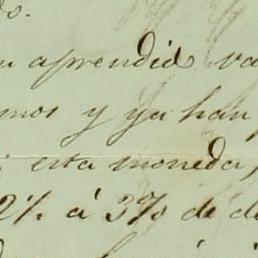 os.
aprendido va
mos y ya han
esta moneda,
2% á 3% de de